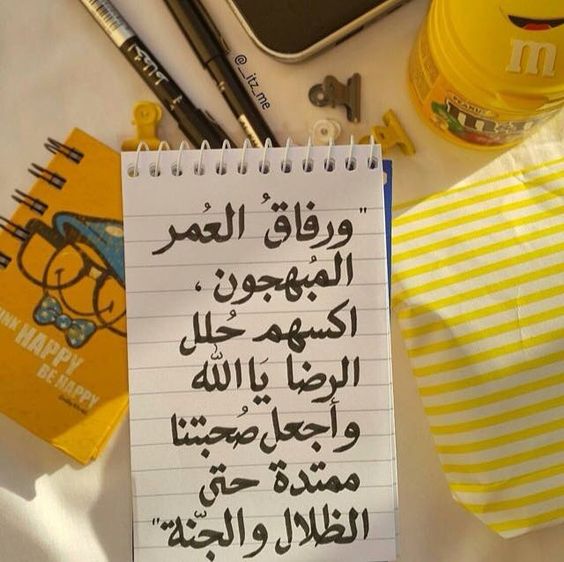 @_itz_me
"ورفاقُ العُمر
المُبهجون ،
اكسهم حُلل
الرضا يَا الله
وأجعل صُحبتنا
ممتدة حتى
الظلال والجنّة"
THINK HAPPY
BE HAPPY
m
PEANUT
m&m's